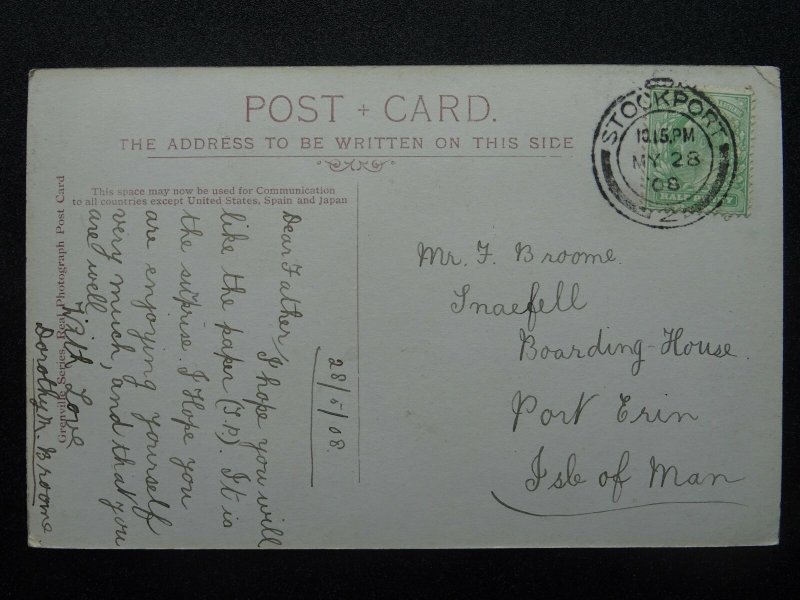 POST + CARD.
THE ADDRESS TO BE WRITTEN ON THIS SIDE
This space may now be used for Communication
to all countries except United States, Spain and Japan
Grenville Series. Real Photograph Post Card
STOCKPORT
10.15.PM
MY 28
08
2
HALFPENNY
28/5/08.
Dear Father,
I hope you will
like the paper (T.P). It is
the suprise. I Hope you
are enjoying yourself
very much, and that you
are well
With Love
Dorothy M. Broome
Mr. F. Broome.
Snaefell
Boarding-House.
Port Erin
Isle of Man